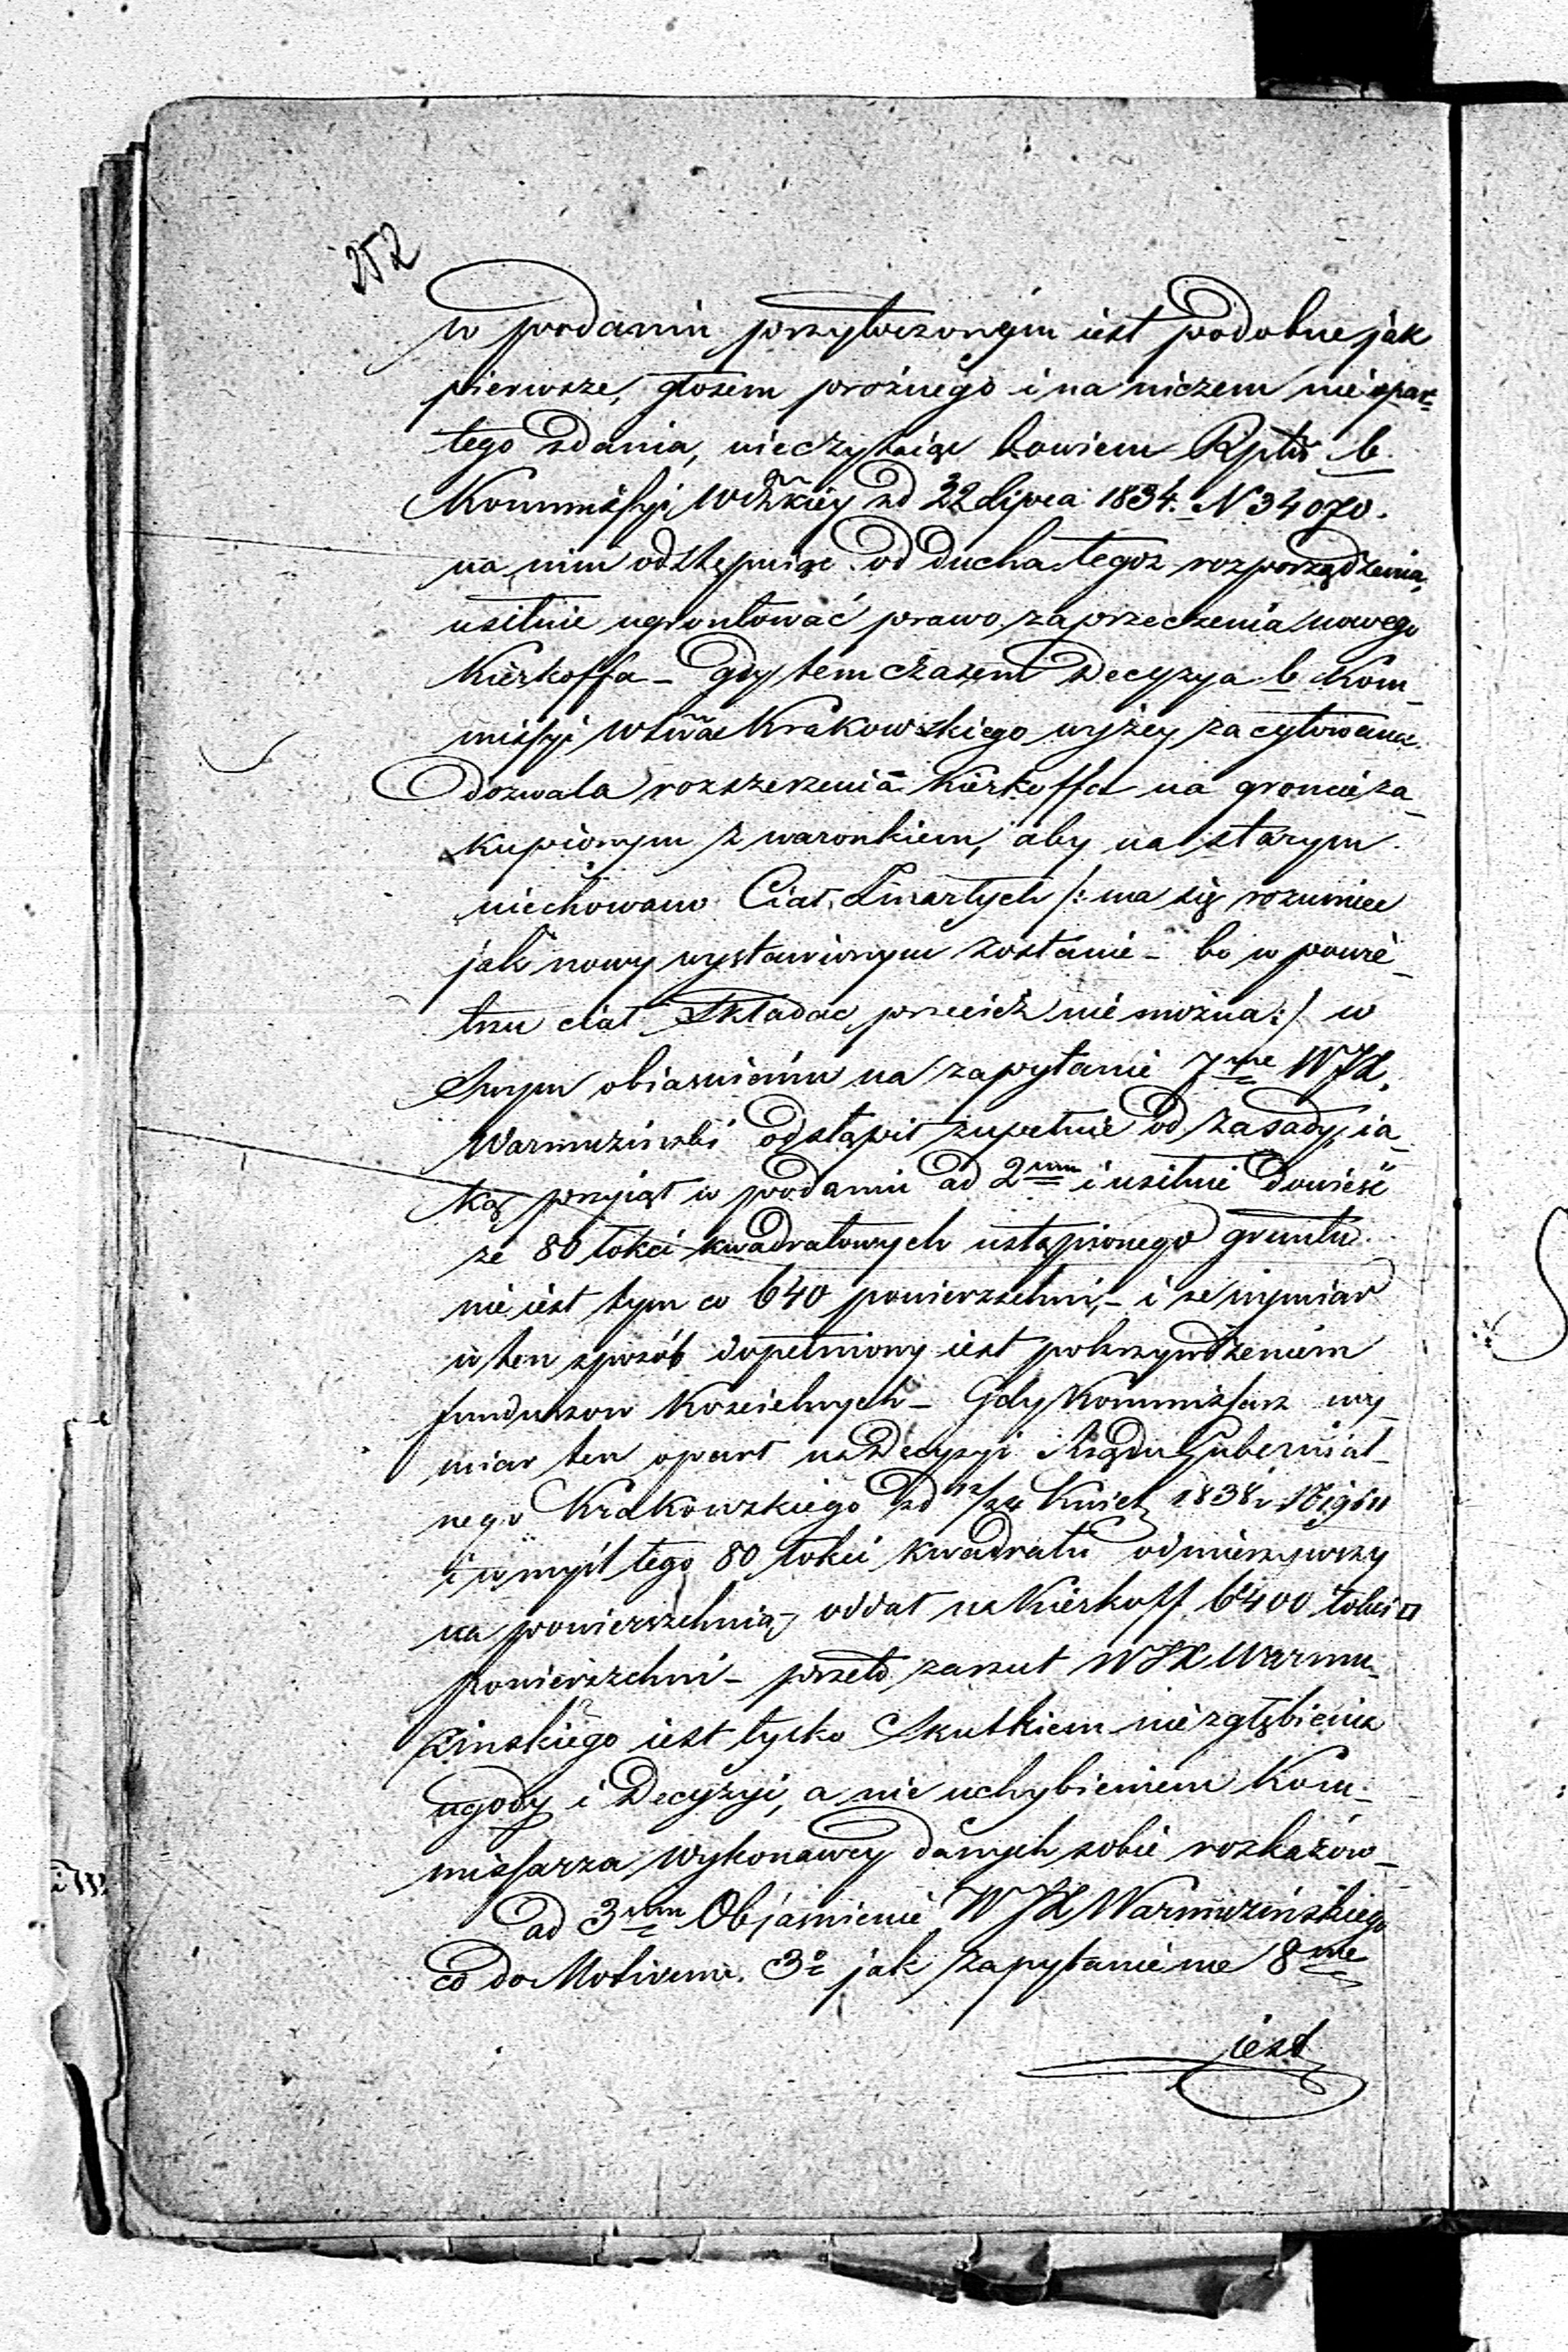 252
w podaniu przytoczonym iest podobne jak
pierwsze, głosem prożnego i na niczem nie opar=
tego zdania, nieczytaiąc bowiem Rptu b.
Kommissyi Wdzkiey zd 22 Lipca 1834. N 34070.
na nim odstępuiąc od ducha tegoz rozporządzenia,
usilnie ugrontować prawo zaprzeczenia nowego
Kierkoffa – gdy tem czasem Decyzya b. Kom_
missyi Wtwa Krakowskiego wyżey zacytowana
dozwala rozszerzenia Kierkoffa na groncie za_
kupionym z waronkiem, aby na starym
niechowano Ciał Zmarłych /: ma się rozumiec
jak nowy wystawionym zostanie – bo w powie_
trzu ciał składac przecież nie można :/ w
Swym obiasnieniu na zapytanie 7me WJX.
Warmuzinski odstąpił zupełnie od zasady, ia_
ką przyiął w podaniu ad 2um i usilnie dowieść
ze 80 łokci kwadratowych ustąpionego gruntu
nie iest tym co 640 powierzchni, – i ze wymiar
w ten sposób dopełniony iest pokrzywdzeniem
funduszow Koscielnych – Gdy Kommissarz wy_
miar ten oparł na Decyzyi Rządu Gubernial_
nego Krakowskiego zd 12/24 Kwiet 1838 r
i w myśl tego 80 łokci kwadratu odmierzywszy
na powierzchnią, oddał na Kierkoff 6400 łokci □
powierzchni – przeto zarzut WJX Warmu_
zinskiego iest tylko Skutkiem niezgłębienia
ugody i Decyzyi, a nie uchybieniem Kom_
missarza wykonawcy danych sobie rozkazow –
ad 3um Objasnienie WJX Warmuzińskiego
co do Motivum 3o jak zapytanie me 8me
iest